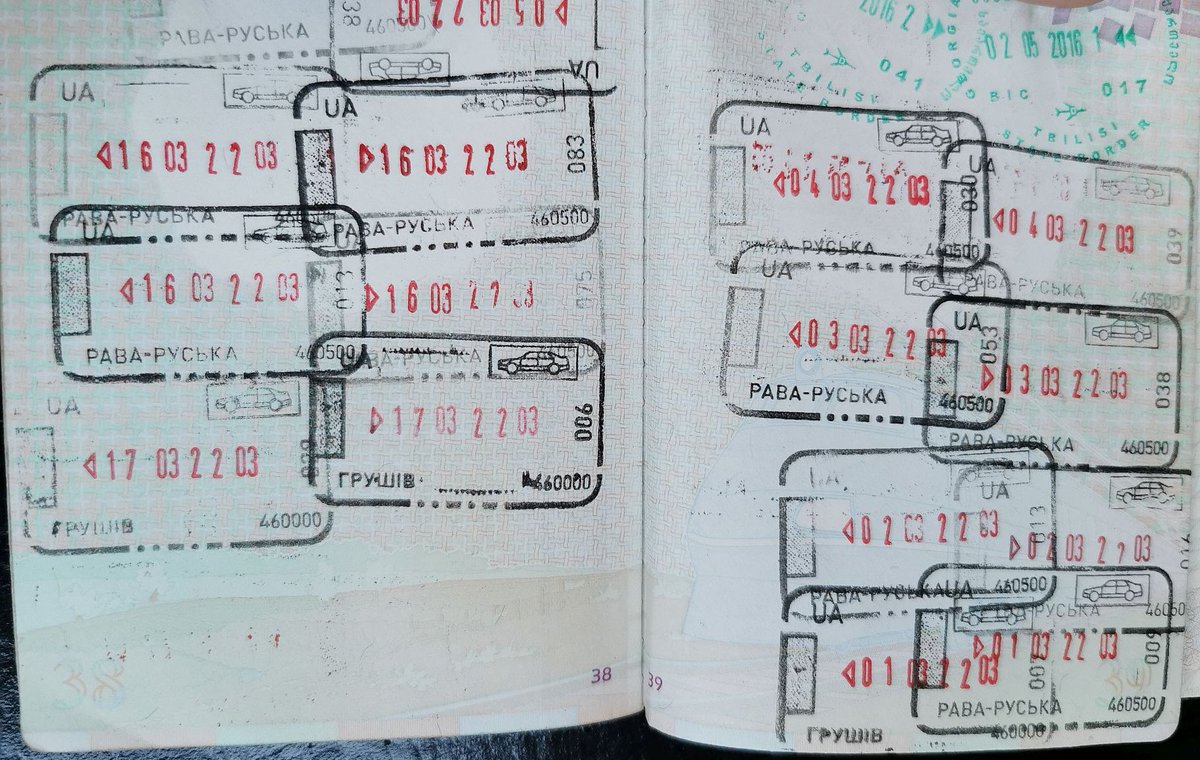 РАВА-РУСЬКА
UA
16 03 22 03
РАВА-РУСЬКА
UA
16 03 22 03
083
РАВА-РУСЬКА 460500
UA
16 03 22 03
013
РАВА-РУСЬКА 460500
16 03 2
075
UA
17 03 22 03
ГРУШІВ 460000
UA
17 03 22 03
006
ГРУШІВ 460000
38
2016
02 05 2016
041
017
TBILISI
TBILISI
STATE BORDER
UA
04 03 22 03
030
РАВА-РУСЬКА 460500
UA
04 03 22 03
039
РАВА-РУСЬКА 460500
UA
03 03 22 03
053
РАВА-РУСЬКА 460500
UA
03 03 22 03
038
РАВА-РУСЬКА 460500
UA
02 03 22 03
013
РАВА-РУСЬКА 460500
UA
02 03 22 03
РУСЬКА
UA
01 03 22 03
007
ГРУШІВ 460000
UA
01 03 22 03
009
РАВА-РУСЬКА 460500
39